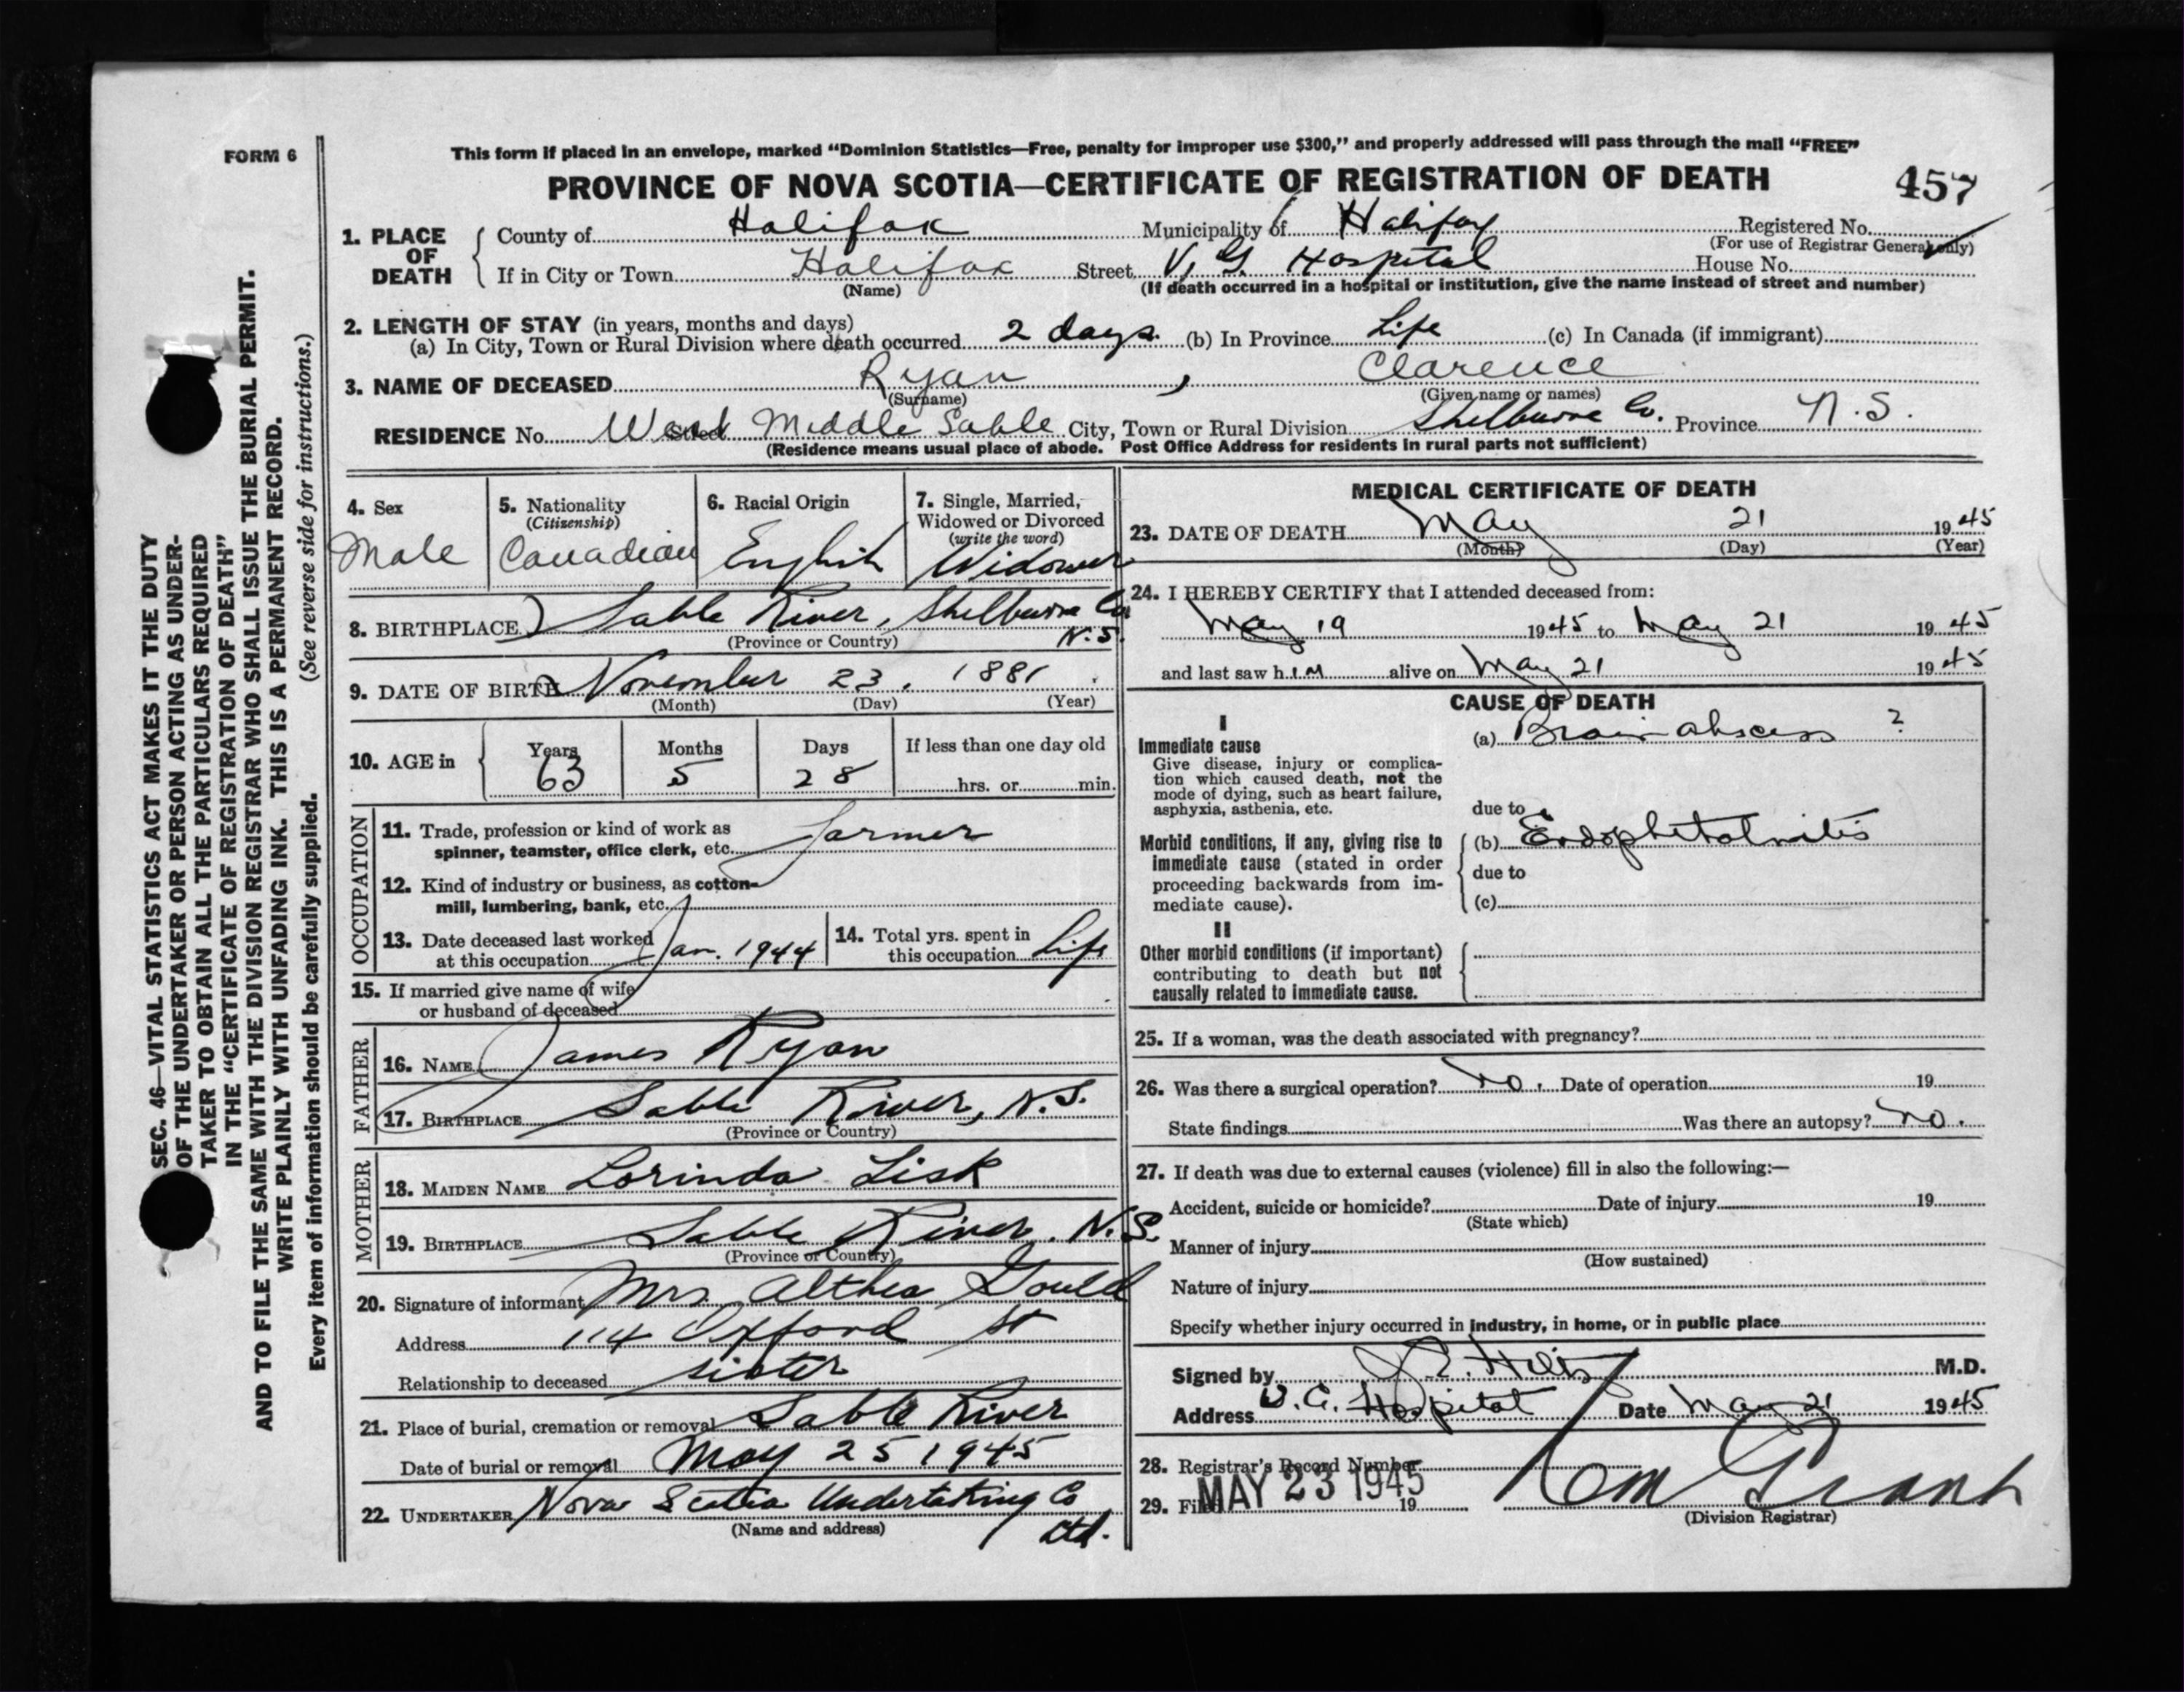 FORM 6
This form if placed in an envelope, marked “Dominion Statistics—Free, penalty for improper use $300,” and properly addressed will pass through the mail “FREE”
PROVINCE OF NOVA SCOTIA—CERTIFICATE OF REGISTRATION OF DEATH 457
1. PLACE OF DEATH
County of Halifax Municipality of Halifax Registered No.
(For use of Registrar General only)
If in City or Town Halifax Street V. G. Hospital House No.
(Name) (If death occurred in a hospital or institution, give the name instead of street and number)
2. LENGTH OF STAY (in years, months and days)
(a) In City, Town or Rural Division where death occurred 2 days. (b) In Province Life (c) In Canada (if immigrant)
3. NAME OF DECEASED Ryan, Clarence
(Surname) (Given name or names)
RESIDENCE No. Street Middle Sable City, Town or Rural Division Shelburne Co. Province N.S.
(Residence means usual place of abode. Post Office Address for residents in rural parts not sufficient)
4. Sex
Male
5. Nationality
(Citizenship)
Canadian
6. Racial Origin
English
7. Single, Married,
Widowed or Divorced
(write the word)
Widower
8. BIRTHPLACE Sable River, Shelburne Co
N.S.
(Province or Country)
9. DATE OF BIRTH November 23, 1881
(Month) (Day) (Year)
10. AGE in
Years Months Days If less than one day old
63 5 28 hrs. or min.
OCCUPATION
11. Trade, profession or kind of work as
spinner, teamster, office clerk, etc. Farmer
12. Kind of industry or business, as cotton-
mill, lumbering, bank, etc.
13. Date deceased last worked
at this occupation Jan. 1944
14. Total yrs. spent in
this occupation Life
15. If married give name of wife
or husband of deceased
FATHER
16. NAME James Ryan
17. BIRTHPLACE Sable River, N.S.
(Province or Country)
MOTHER
18. MAIDEN NAME Lorinda Lisk
19. BIRTHPLACE Sable River. N.S.
(Province or Country)
20. Signature of informant Mrs Althea Gould
Address 114 Oxford St
Relationship to deceased sister
21. Place of burial, cremation or removal Sable River
Date of burial or removal May 25 1945
22. UNDERTAKER Nova Scotia Undertaking Co
Ltd.
(Name and address)
MEDICAL CERTIFICATE OF DEATH
23. DATE OF DEATH May 21 1945
(Month) (Day) (Year)
24. I HEREBY CERTIFY that I attended deceased from:
May 19 1945 to May 21 1945
and last saw h im alive on May 21 1945
CAUSE OF DEATH
I
Immediate cause
Give disease, injury or complica-
tion which caused death, not the
mode of dying, such as heart failure,
asphyxia, asthenia, etc.
(a) Brain abscess ?
due to
Morbid conditions, if any, giving rise to
immediate cause (stated in order
proceeding backwards from im-
mediate cause).
(b)
due to
(c)
II
Other morbid conditions (if important)
contributing to death but not
causally related to immediate cause.
25. If a woman, was the death associated with pregnancy?
26. Was there a surgical operation? No. Date of operation 19
State findings Was there an autopsy? No.
27. If death was due to external causes (violence) fill in also the following:—
Accident, suicide or homicide? Date of injury 19
(State which)
Manner of injury
(How sustained)
Nature of injury
Specify whether injury occurred in industry, in home, or in public place
Signed by J. E. Hiltz M.D.
Address V. G. Hospital Date May 21 1945
28. Registrar's Record Number
29. Filed MAY 23 1945 19
Grant
(Division Registrar)
SEC. 46—VITAL STATISTICS ACT MAKES IT THE DUTY
OF THE UNDERTAKER OR PERSON ACTING AS UNDER-
TAKER TO OBTAIN ALL THE PARTICULARS REQUIRED
IN THE “CERTIFICATE OF REGISTRATION OF DEATH”
AND TO FILE THE SAME WITH THE DIVISION REGISTRAR WHO SHALL ISSUE THE BURIAL PERMIT.
WRITE PLAINLY WITH UNFADING INK. THIS IS A PERMANENT RECORD.
Every item of information should be carefully supplied. (See reverse side for instructions.)